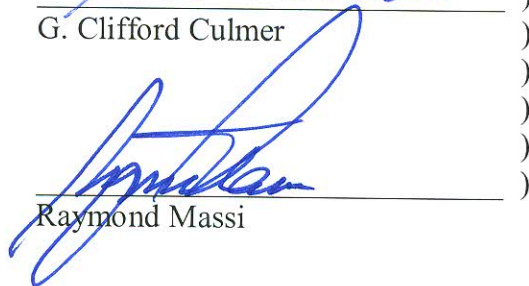 G. Clifford Culmer )
)
)
)
)
)
Raymond Massi